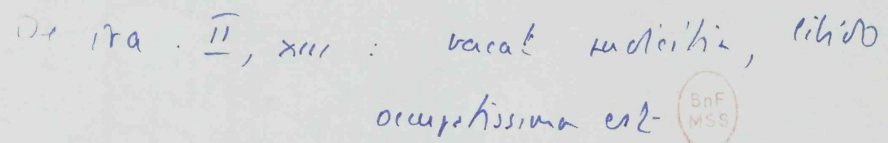 De ira. II, XIII : vacat pudicitia, libido
occupatissima est
BnF
MSS